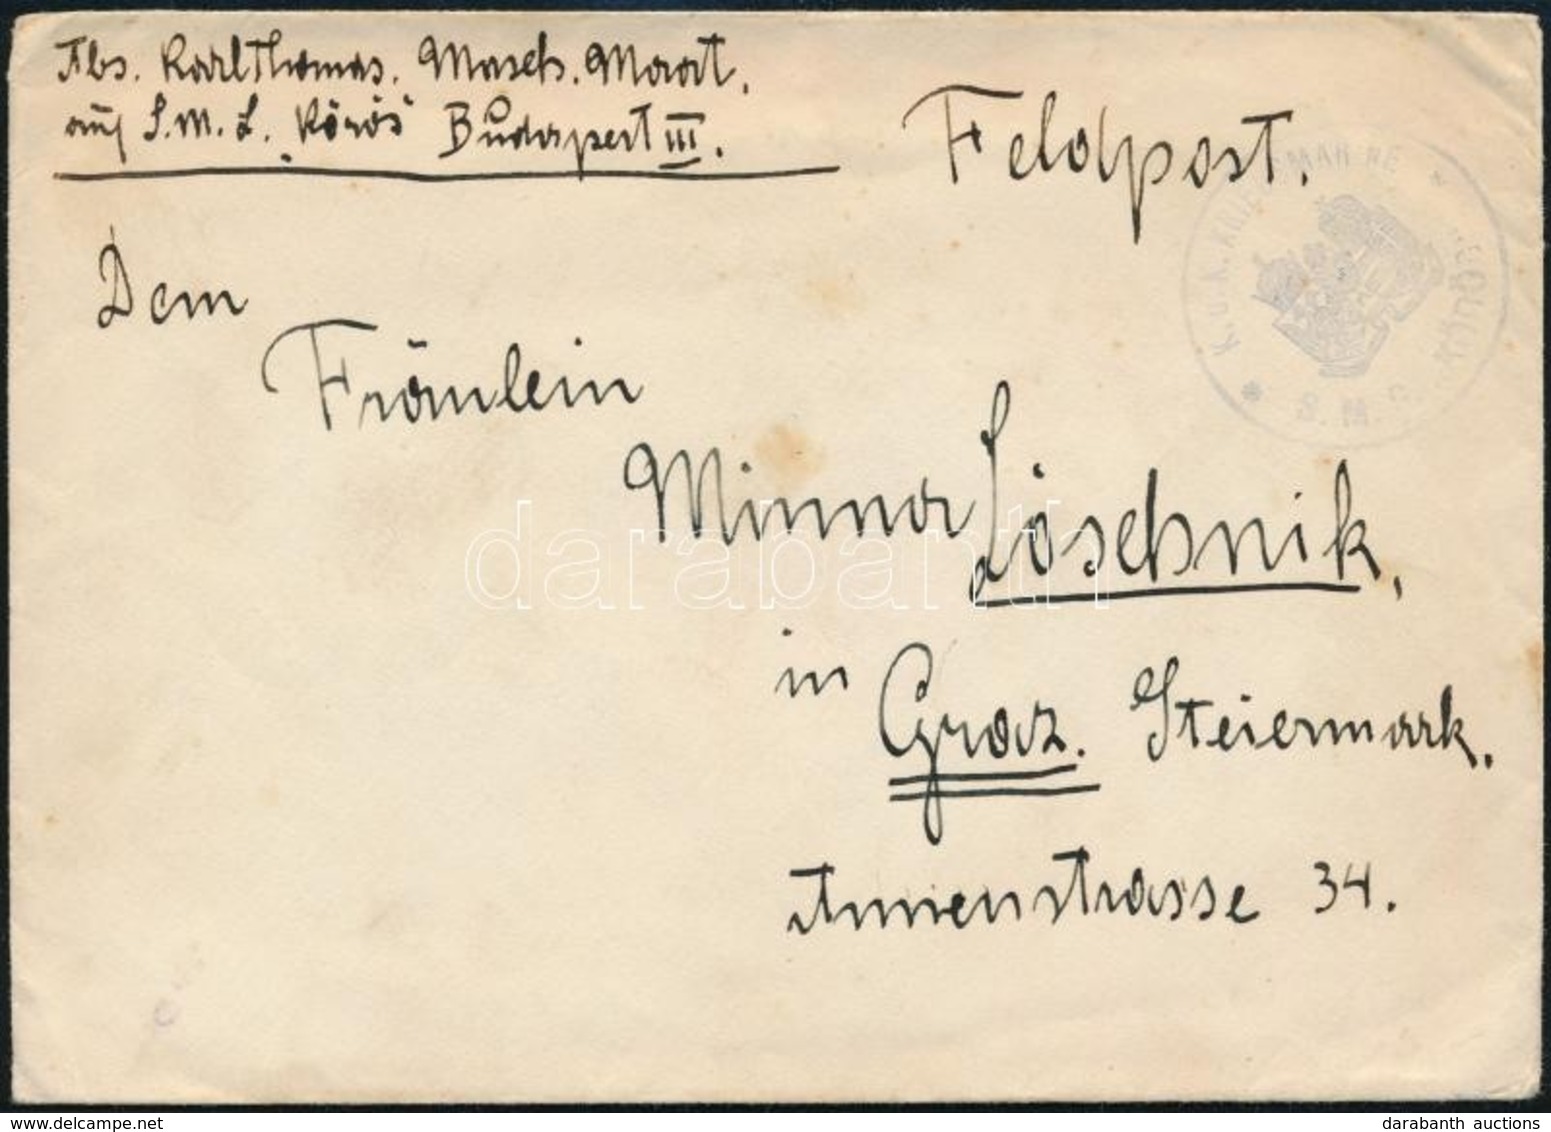 Abs. Karl Thomas. Masch. Maat.
auf S.M.S. "Körös" Budapest III.
Feldpost.
K. u. K. KRIEGSMARINE
S. M. S. "Körös"
Dem
Fräulein
Minna Löschnik,
darabanth
in Graz. Steiermark.
Annenstrasse 34.
delcampe.net
darabanth auctions